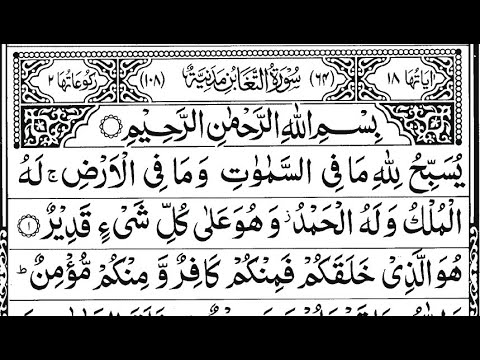 اٰيَاتُهَا ١٨ (٦٤) سُوْرَةُ التَّغَابُنِ مَدَنِيَّةٌ (١٠٨) رُكُوْعَاتُهَا ٢
بِسْمِ اللّٰهِ الرَّحْمٰنِ الرَّحِيْمِ
يُسَبِّحُ لِلّٰهِ مَا فِى السَّمٰوٰتِ وَمَا فِى الْاَرْضِ ۚ لَهُ
الْمُلْكُ وَلَهُ الْحَمْدُ ۡ وَهُوَ عَلٰى كُلِّ شَىْءٍ قَدِيْرٌ ۝١
هُوَ الَّذِىْ خَلَقَكُمْ فَمِنْكُمْ كَافِرٌ وَّمِنْكُمْ مُّؤْمِنٌ ؕ